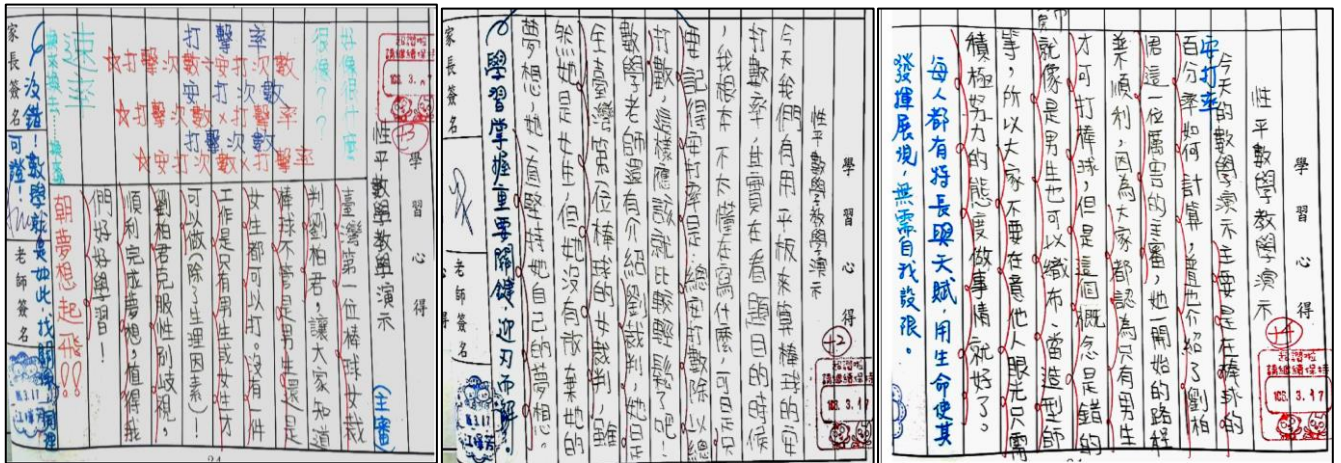 學習心得
性平數學教學演示
臺灣第一位棒球女裁
(主審)
判劉柏君,讓大家知道
棒球不管是男生還是
女生都可以打。沒有一件
工作是只有用生或女生才
可以做(除了生理因素)!
劉柏君克服性別歧視,
順利完成夢想,值得我
們好好學習!
朝夢想起飛!!
+3
好像很什麼
很像??
打擊率
☆打擊次數÷安打次數
安打次數
☆打擊次數×打擊率
打擊次數
☆安打次數×打擊率
沒錯!數學就是如此,找關係
可證!
家長簽名
老師簽名
學習心得
+2
性平數學教學演示
今天我們有用平板來算棒球的安
打數率,其實在看題目的時候
,我根本不太懂在寫什麼,可是只
要記得安打率是:總安打數除以總
打數,這樣應該就比較輕鬆了吧!
數學老師還有介紹劉裁判,她是
全臺灣第一位棒球的女裁判,雖
然她是女生,但她沒有放棄她的
夢想,她一直堅持她自己的夢想。
學習掌握重要關鍵,迎刃而解。
家長簽名
老師簽名
學習心得
+4
103. 3. 17
性平數學教學演示
今天的數學演示主要是在棒球的
安打率
百分率如何計算,並也介紹了劉柏
君這一位厲害的主審,她一開始的路程
並不順利,因為大家都認為只有男生
才可打棒球,但是這個概念是錯的
就像是男生也可以織布、當造型師
等,所以大家不要在意他人眼光只需
積極努力的態度做事情就好了。
每人都有特長與天賦,用生命使其
發揮展現,無需自我設限。